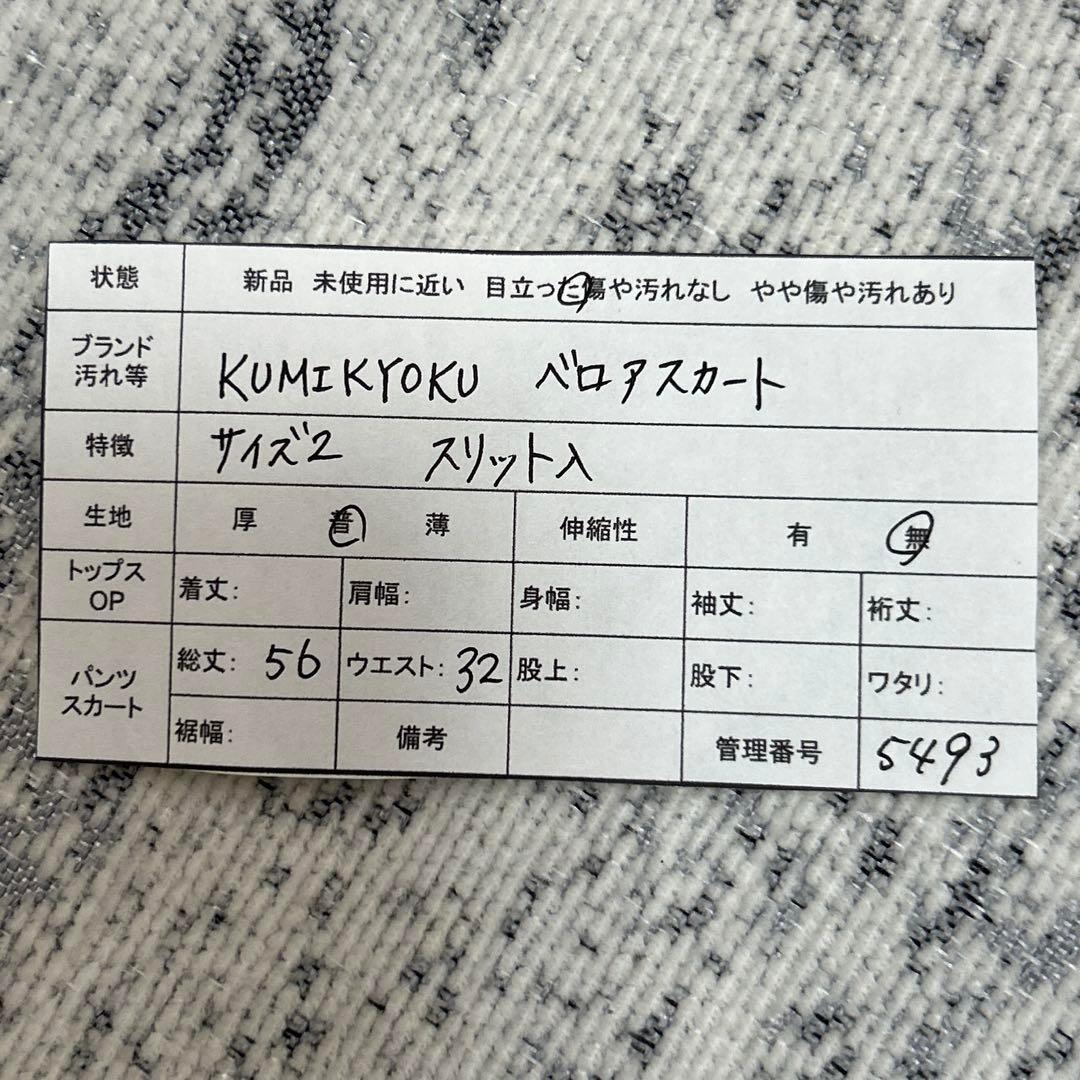 状態 新品 未使用に近い 目立った傷や汚れなし やや傷や汚れあり
ブランド
汚れ等 KUMIKYOKU ベロアスカート
特徴 サイズ2 スリット入
生地 厚 普 薄 伸縮性 有 無
トップス
OP 着丈: 肩幅: 身幅: 袖丈: 裄丈:
パンツ
スカート 総丈: 56 ウエスト: 32 股上: 股下: ワタリ:
裾幅: 備考 管理番号 5493